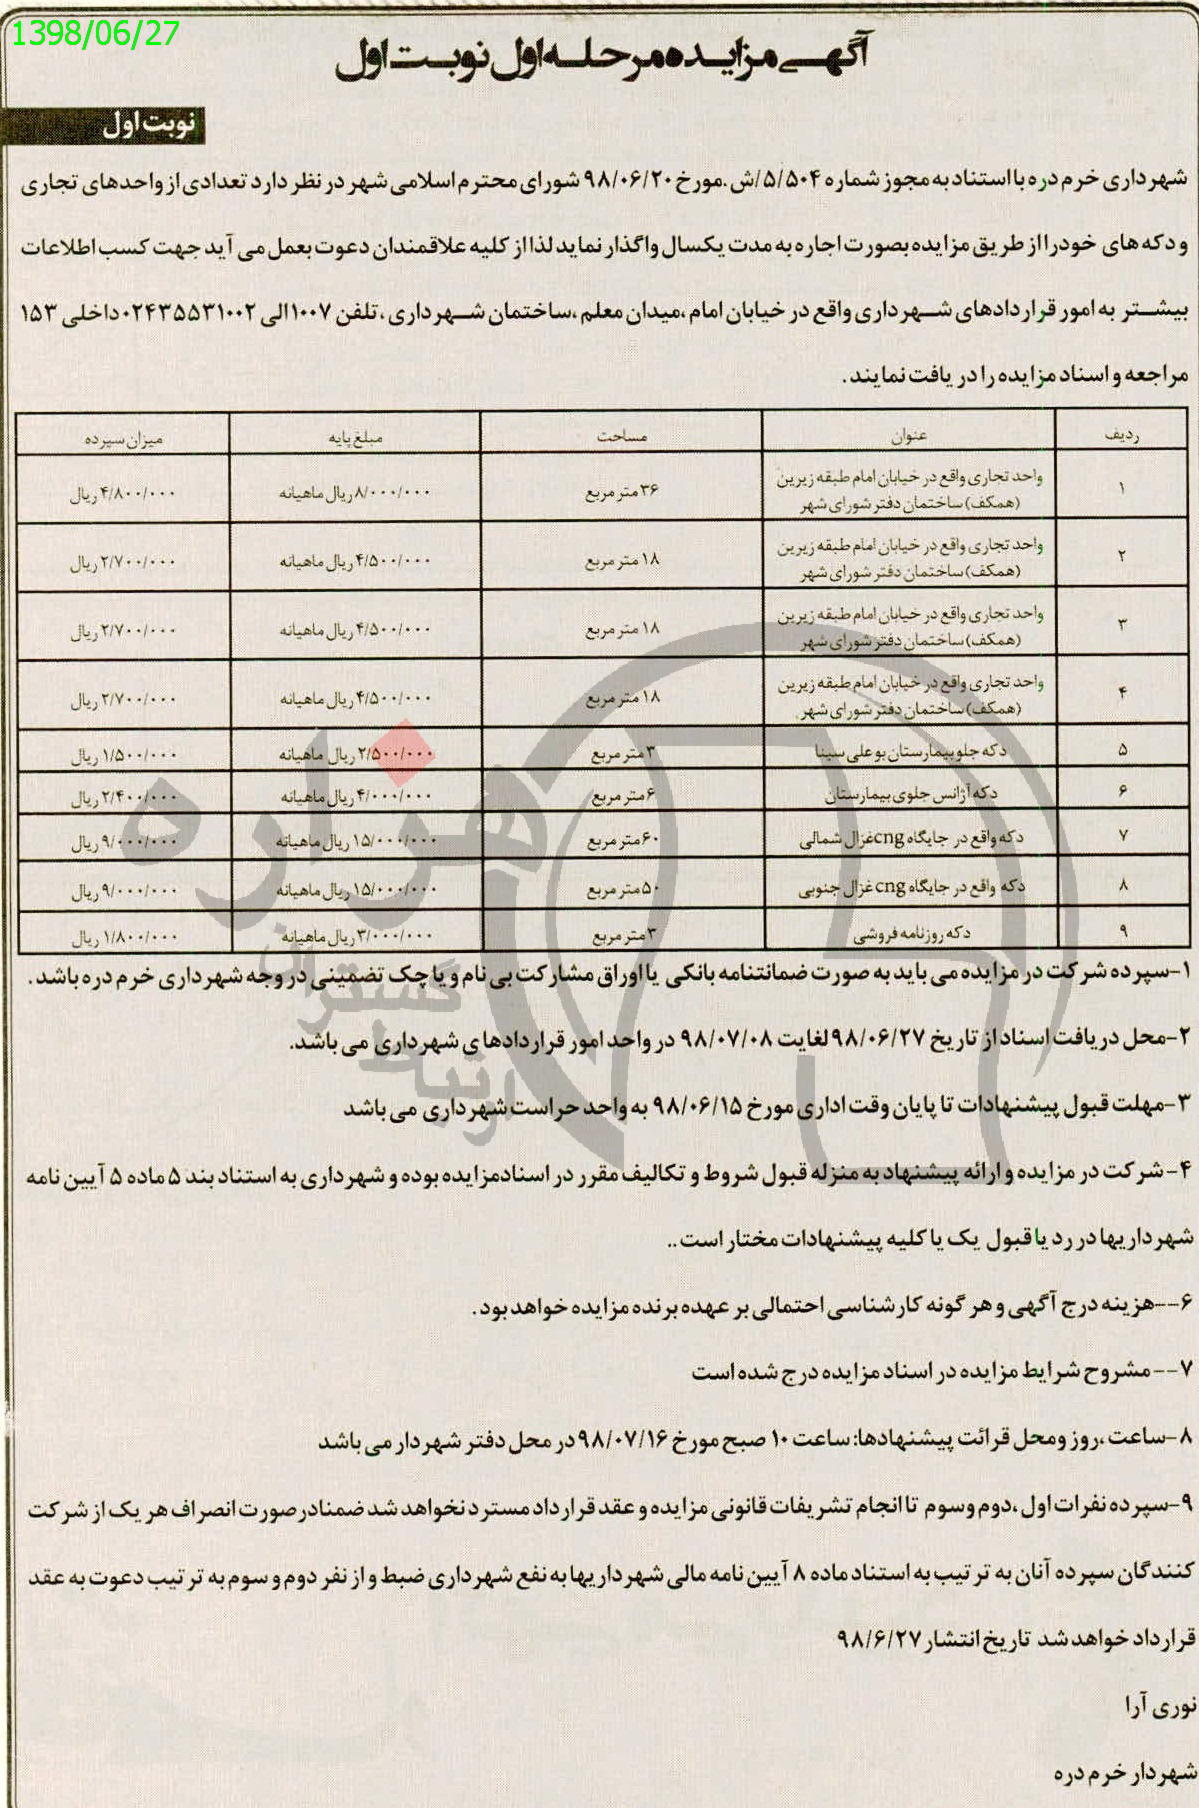 1398/06/27
آگهی مزایده مرحله اول نوبت اول
نوبت اول
شهرداری خرم دره با استناد به مجوز شماره ۵/۵۰۴/ش.مورخ ۹۸/۰۶/۲۰ شورای محترم اسلامی شهر در نظر دارد تعدادی از واحدهای تجاری
و دکه های خود را از طریق مزایده بصورت اجاره به مدت یکسال واگذار نماید لذا از کلیه علاقمندان دعوت بعمل می آید جهت کسب اطلاعات
بیشتر به امور قراردادهای شهرداری واقع در خیابان امام ،میدان معلم ،ساختمان شهرداری ،تلفن ۱۰۰۷الی ۰۲۴۳۵۵۳۱۰۰۲داخلی ۱۵۳
مراجعه و اسناد مزایده را دریافت نمایند.
ردیف عنوان مساحت مبلغ پایه میزان سپرده
۱ واحد تجاری واقع در خیابان امام طبقه زیرین (همکف) ساختمان دفتر شورای شهر ۳۶ متر مربع ۸/۰۰۰/۰۰۰ ریال ماهیانه ۴/۸۰۰/۰۰۰ ریال
۲ واحد تجاری واقع در خیابان امام طبقه زیرین (همکف) ساختمان دفتر شورای شهر ۱۸ متر مربع ۴/۵۰۰/۰۰۰ ریال ماهیانه ۲/۷۰۰/۰۰۰ ریال
۳ واحد تجاری واقع در خیابان امام طبقه زیرین (همکف) ساختمان دفتر شورای شهر ۱۸ متر مربع ۴/۵۰۰/۰۰۰ ریال ماهیانه ۲/۷۰۰/۰۰۰ ریال
۴ واحد تجاری واقع در خیابان امام طبقه زیرین (همکف) ساختمان دفتر شورای شهر. ۱۸ متر مربع ۴/۵۰۰/۰۰۰ ریال ماهیانه ۲/۷۰۰/۰۰۰ ریال
۵ دکه جلوبیمارستان بوعلی سینا ۳ متر مربع ۲/۵۰۰/۰۰۰ ریال ماهیانه ۱/۵۰۰/۰۰۰ ریال
۶ دکه آژانس جلوی بیمارستان ۶ متر مربع ۴/۰۰۰/۰۰۰ ریال ماهیانه ۲/۴۰۰/۰۰۰ ریال
۷ دکه واقع در جایگاه cng غزال شمالی ۶۰ متر مربع ۱۵/۰۰۰/۰۰۰ ریال ماهیانه ۹/۰۰۰/۰۰۰ ریال
۸ دکه واقع در جایگاه cng غزال جنوبی ۵۰ متر مربع ۱۵/۰۰۰/۰۰۰ ریال ماهیانه ۹/۰۰۰/۰۰۰ ریال
۹ دکه روزنامه فروشی ۳ متر مربع ۳/۰۰۰/۰۰۰ ریال ماهیانه ۱/۸۰۰/۰۰۰ ریال
۱-سپرده شرکت در مزایده می باید به صورت ضمانتنامه بانکی یا اوراق مشارکت بی نام و یا چک تضمینی در وجه شهرداری خرم دره باشد.
۲-محل دریافت اسناد از تاریخ ۹۸/۰۶/۲۷ لغایت ۹۸/۰۷/۰۸ در واحد امور قراردادهای شهرداری می باشد.
۳-مهلت قبول پیشنهادات تا پایان وقت اداری مورخ ۹۸/۰۶/۱۵ به واحد حراست شهرداری می باشد
۴-شرکت در مزایده و ارائه پیشنهاد به منزله قبول شروط و تکالیف مقرر در اسنادمزایده بوده و شهرداری به استناد بند ۵ ماده ۵ آیین نامه
شهرداریها در رد یا قبول یک یا کلیه پیشنهادات مختار است..
۶--هزینه درج آگهی و هر گونه کارشناسی احتمالی بر عهده برنده مزایده خواهد بود.
۷-- مشروح شرایط مزایده در اسناد مزایده درج شده است
۸-ساعت ،روز ومحل قرائت پیشنهادها: ساعت ۱۰ صبح مورخ ۹۸/۰۷/۱۶ در محل دفتر شهردار می باشد
۹-سپرده نفرات اول ،دوم وسوم تا انجام تشریفات قانونی مزایده و عقد قرارداد مسترد نخواهد شد ضمنادرصورت انصراف هر یک از شرکت
کنندگان سپرده آنان به ترتیب به استناد ماده ۸ آیین نامه مالی شهرداریها به نفع شهرداری ضبط و از نفر دوم و سوم به ترتیب دعوت به عقد
قرارداد خواهد شد تاریخ انتشار ۹۸/۶/۲۷
نوری آرا
شهردار خرم دره
هزاره
گستران
ارتباط